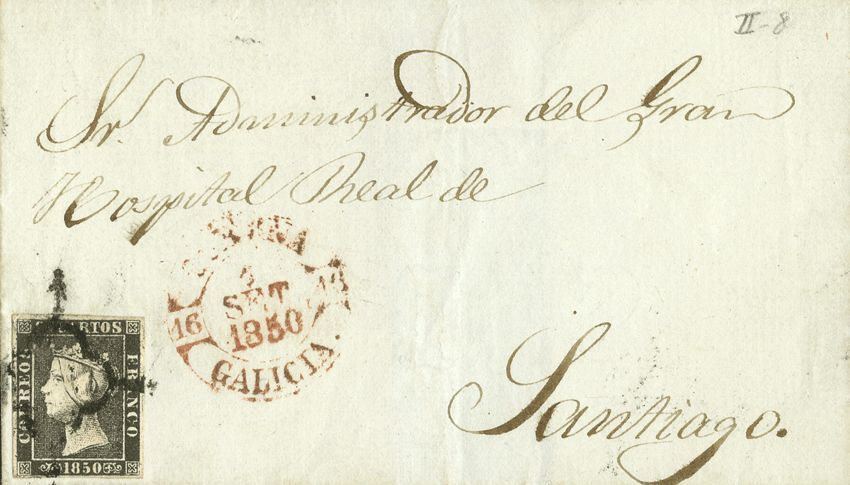 II-8
Sr. Administrador del Gran
Hospital Real de
Santiago.
SET
1850
16
GALICIA.
CUARTOS
CORREOS
FRANCO
1850